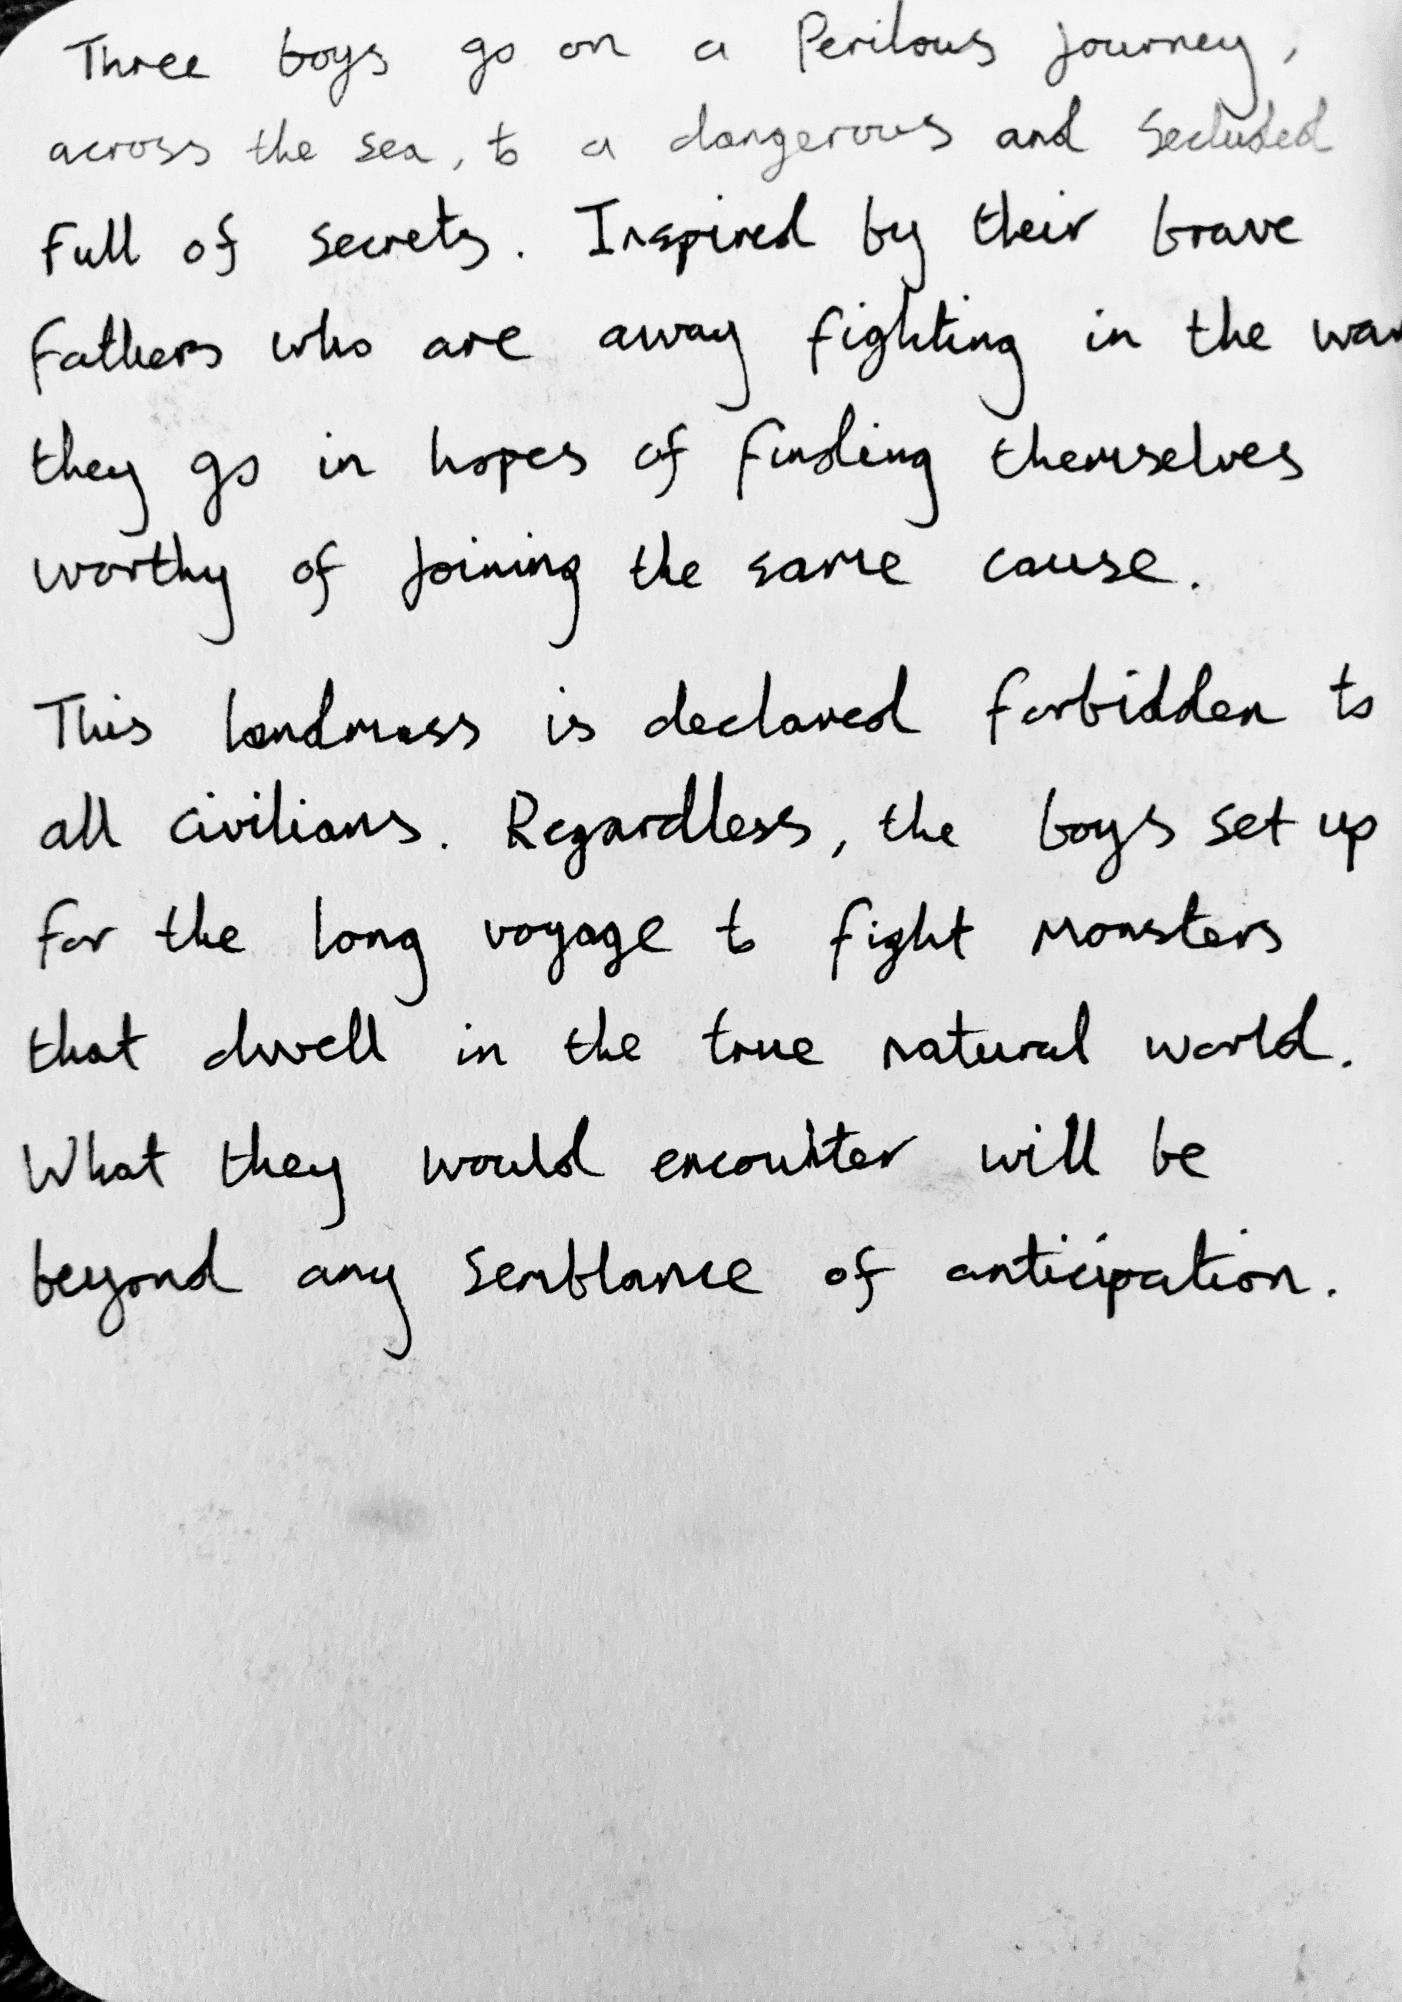 Three boys go on a Perilous journey,
across the sea, to a dangerous and secluded
full of secrets. Inspired by their brave
fathers who are away fighting in the war
they go in hopes of finding themselves
worthy of joining the same cause.
This landmass is declared forbidden to
all civilians. Regardless, the boys set up
for the long voyage to fight monsters
that dwell in the true natural world.
What they would encounter will be
beyond any semblance of anticipation.